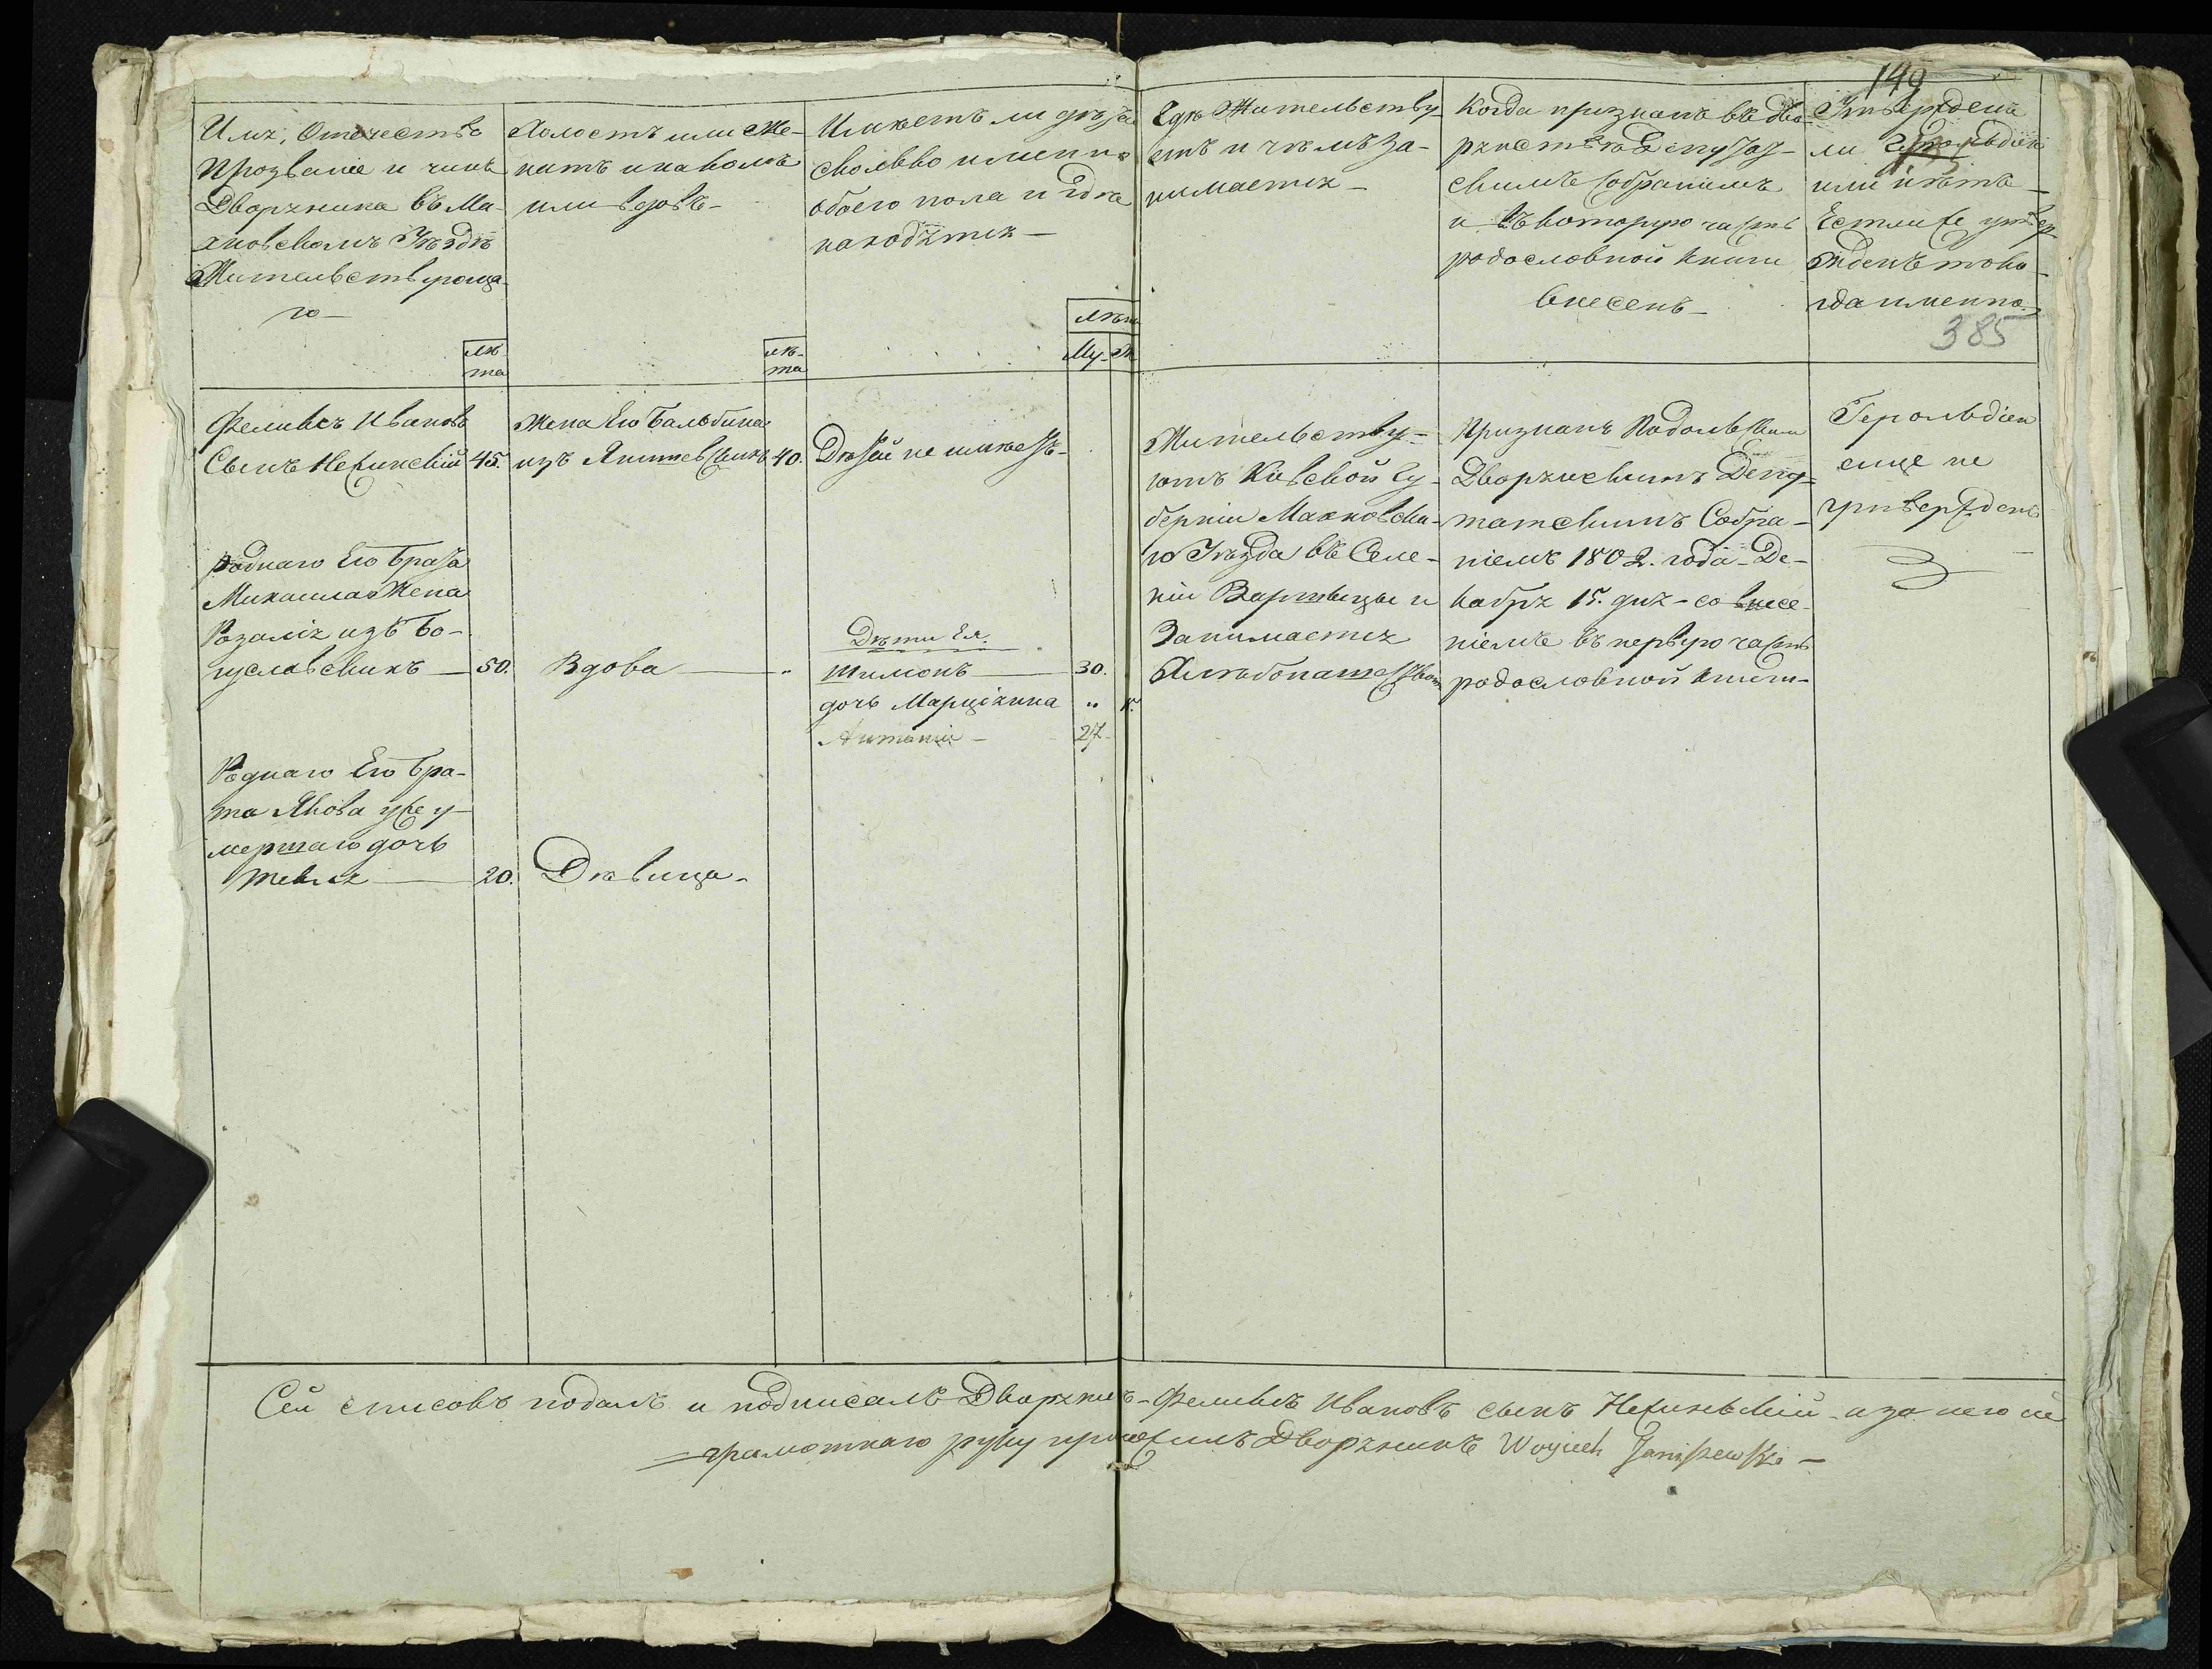 149
Имя, Отечество
Прозваніе и чинъ
Дворянина въ Ма-
хновскомъ Уѣздѣ
Жительствующа-
го
лѣ-
та
Холостъ или же-
натъ и на комъ
или вдовъ
лѣ-
та
Имѣетъ ли дѣтей
сколько именно
обоего пола и гдѣ
находятся
лѣта
Му. Ж.
Гдѣ Жительству-
етъ и чѣмъ за-
нимается
Когда признанъ въ дво-
рянствѣ Депутат-
скимъ Собраніемъ
и въ которую часть
родословной книги
внесенъ
Утвержденъ
ли Герольдіею
или нѣтъ
Естли же утвер-
жденъ то ко-
гда именно
385
Феликсъ Ивановъ
Сынъ 45.
Жена Его Бальбина
изъ Янишевскихъ 40.
Дѣтей не имѣетъ
Жительству-
ютъ Кіевской Гу-
берніи Махновска-
го Уѣзда въ Селе-
ніи и
Занимается
Хлѣбопашествомъ
Признанъ Подольскимъ
Дворянскимъ Депу-
татскимъ Собра-
ніемъ 1802. года Де-
кабря 15. дня со внесе-
ніемъ въ первую часть
родословной книги
Герольдіею
еще не
утвержденъ
роднаго Его брата
Михаила Жена
Розалія изъ Бо-
гуславскихъ 50.
Вдова "
Дѣти Ея.
Шимонъ 30.
дочь Марціянна "
Антоній 27
Роднаго Его бра-
та Якова уже у-
мершаго дочь
Текля 20.
Дѣвица
Сей списокъ подалъ и подписалъ Дворянинъ Феликсъ Ивановъ сынъ а за него не
грамотнаго руку приложилъ Дворянинъ Woyciech Janiszewski